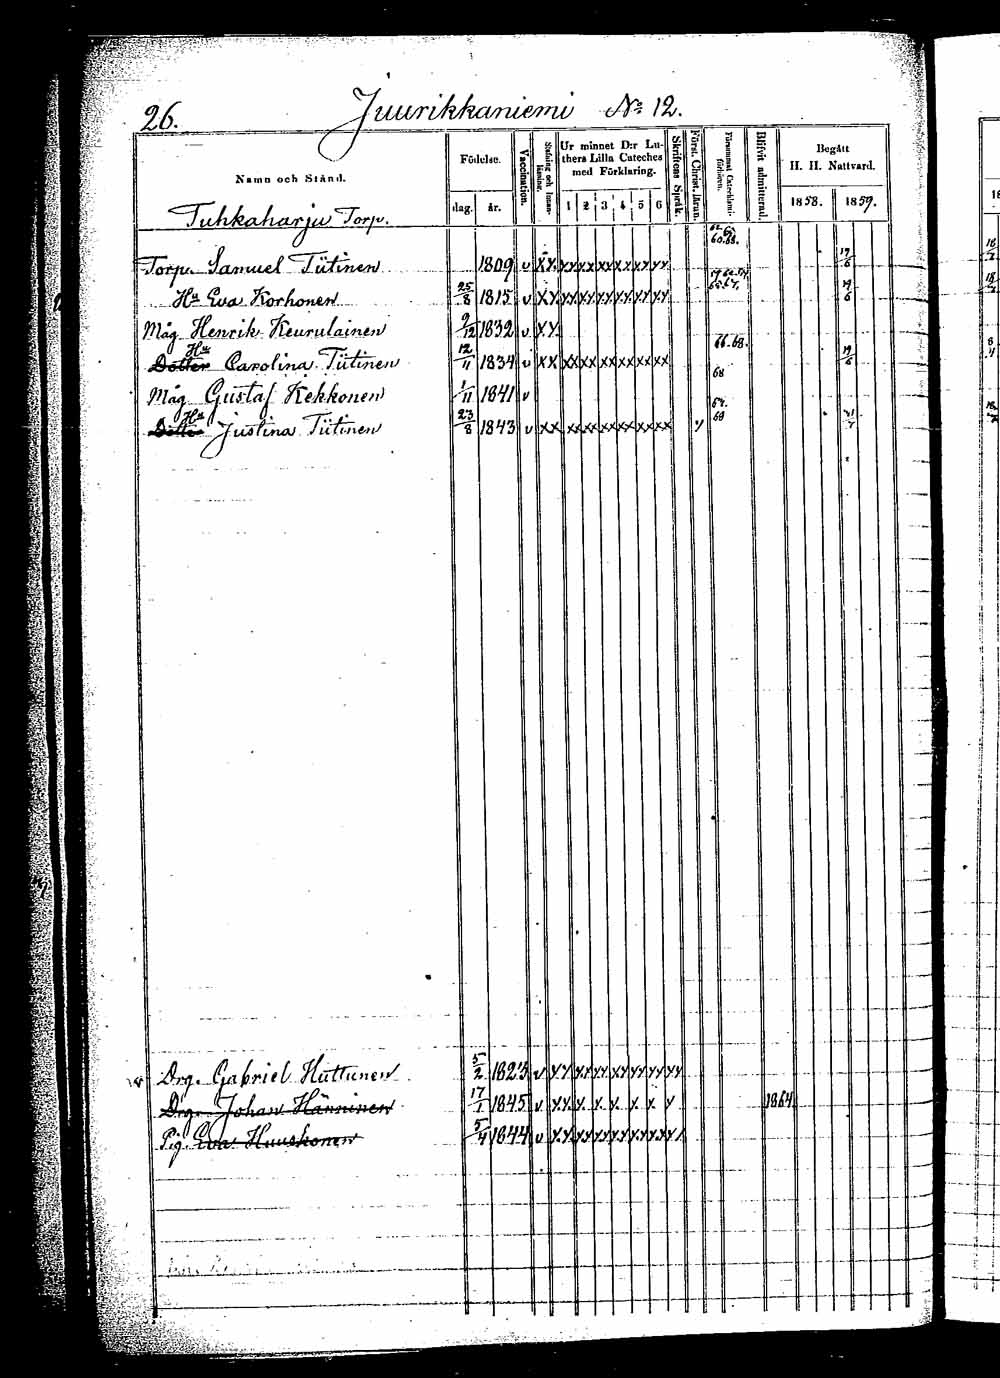 26. Juurikkaniemi No 12.
Namn och Stånd.
Födelse.
dag. år.
Vaccination.
Ur minnet D:r Luthers Lilla Cateches med Förklaring.
1 2 3 4 5 6
Skriftens Språk.
Först. Christ. läran.
Blifvit admitterad.
Begått H. H. Nattvard.
1858. 1859.
Tuhkaharju Torp.
Torp. Samuel Tiitinen 1809 v xx xx xx xx xx xx xx 19/6
Hu Eva Korhonen 25/8 1815 v xx xx xx xx xx xx xx 19/6
Måg Henrik Keurulainen 9/12 1832 v xx
66.68.
Dotter Hu Carolina Tiitinen 12/11 1834 v xx xx xx xx xx xx xx 19/6
68
Måg Gustaf Kekkonen 1/11 1841 v
Dotter Hu Justina Tiitinen 23/8 1843 v xx xx xx xx xx xx xx
Drg. Gabriel Huttunen 5/2 1823 v xx xx xx xx xx xx xx
Drg. Johan Hänninen 17/1 1845 v xx x x x x x x 1864
Pig. Eva Huuskonen 5/4 1844 v xx xx xx xx xx xx xx